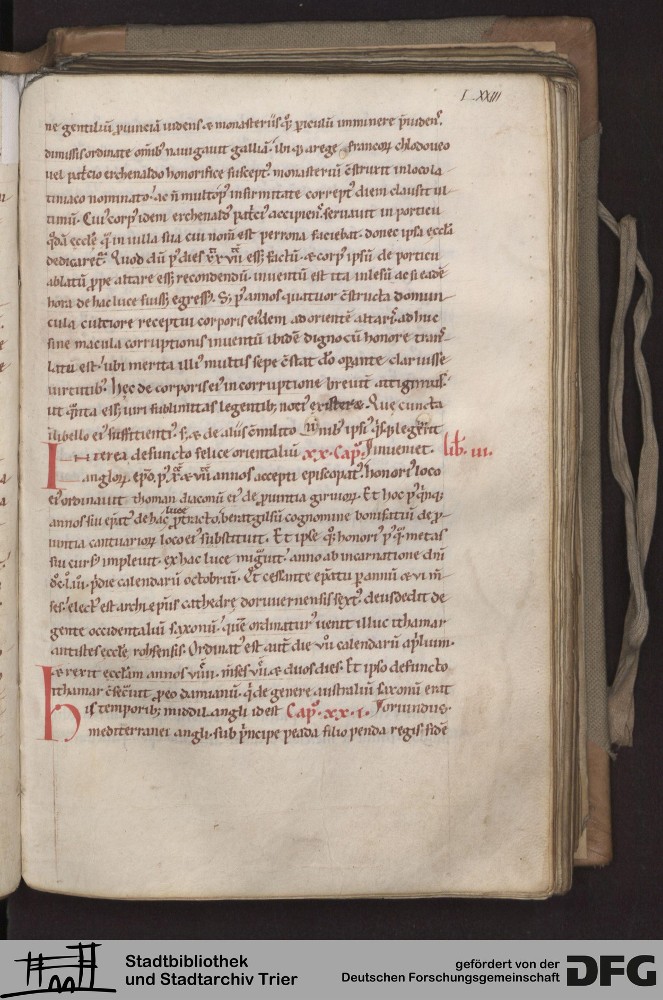 L XXIII
ne gentiliũ ꝓuinciã uidens. & monasteriis qͦꝫ periculũ imminere p̃uidens.
dimissis ordinate om̃ib; nauigauit galliã. ibiq; a rege francoꝝ chlodoueo
uel pat̃cio erchenaldo honorifice suscept᾿ monasteriũ c̃struxit in loco la
tiniaco nominato. ac ñ multo p᾿ infirmitate corrept᾿ diem clausit ul
timũ. Cui᾿ corp᾿ idem erchenald᾿ pat̃ci᾿ accipiens seruauit in porticu
q̃dã eccl̃e q̃ in uilla sua cui nom̃ est perrona faciebat. donec ipsa eccl̃a
dedicaret᾿. Quod dũ p᾿ dies xx vii ess& factũ. & corp᾿ ipsũ de porticu
ablatũ ꝓpe altare ess& recondendũ. inuentũ est ita inlesũ ac si eadẽ
hora de hac luce fuiss& egress᾿. S; & p᾿ annos quatuor c̃structa domun
cula cultiore receptui corporis ei᾿dem ad orientẽ altaris. adhuc
sine macula corruptionis inuentũ ibidẽ digno cũ honore trans
latũ est. ubi merita illi᾿ multis sepe c̃stat dõ operante claruisse
uirtutib;. Hec de corporis ei᾿ incorruptione breuit̃ attigimus.
ut quanta ess& uiri sublimitas legentib; noti᾿ exister&. Que cuncta
in libello ei᾿ sufficienti᾿. s; & de aliis c̃militonib; ipsi᾿ qͥsq; legerit
Interea defuncto felice orientaliũ xx. Cap᾿. inueniet. lib̃. iii.
angloꝝ ep̃o. p᾿ x & vii annos accepti episcopat᾿. honori᾿ loco
ei᾿ ordinauit thoman diaconũ ei᾿ de ꝓuintia giruioꝝ. Et hoc p᾿ qͥnq;
annos sui ep̃at᾿ de hac luce subtracto. beratgilsũ cognomine bonifatiũ de ꝓ
uintia cantuarioꝝ loco ei᾿ substituit. Et ipse qͦꝫ honori᾿ p᾿q̃ metas
sui curs᾿ impleuit. ex hac luce migͣuit. anno ab incarnatione dñi
dc.liii. p̃die calendarũ octobriũ. Et cessante ep̃atu ꝑ annũ & vi m̃
ses. elect᾿ est archiep̃us cathedrę doruuernensis sext᾿. deusdedit de
gente occidentaliũ saxonũ. quẽ ordinatur᾿ uenit illuc ithamar
antistes eccl̃e rohfensis. Ordinat᾿ est aut̃ die vii calendarũ apriliũ.
& rexit eccl̃am annos viiii. m̃ses vii. & duos dies. Et ipso defuncto
ithamar c̃secͣuit ꝓ eo damianũ. qͥ de genere australiũ saxonũ erat
His temporib; middil angli id est Cap᾿. xx. i. oriundus.
mediterranei angli. sub p̃ncipe peada filio penda regis. fidẽ
Stadtbibliothek
und Stadtarchiv Trier
gefördert von der
Deutschen Forschungsgemeinschaft
DFG